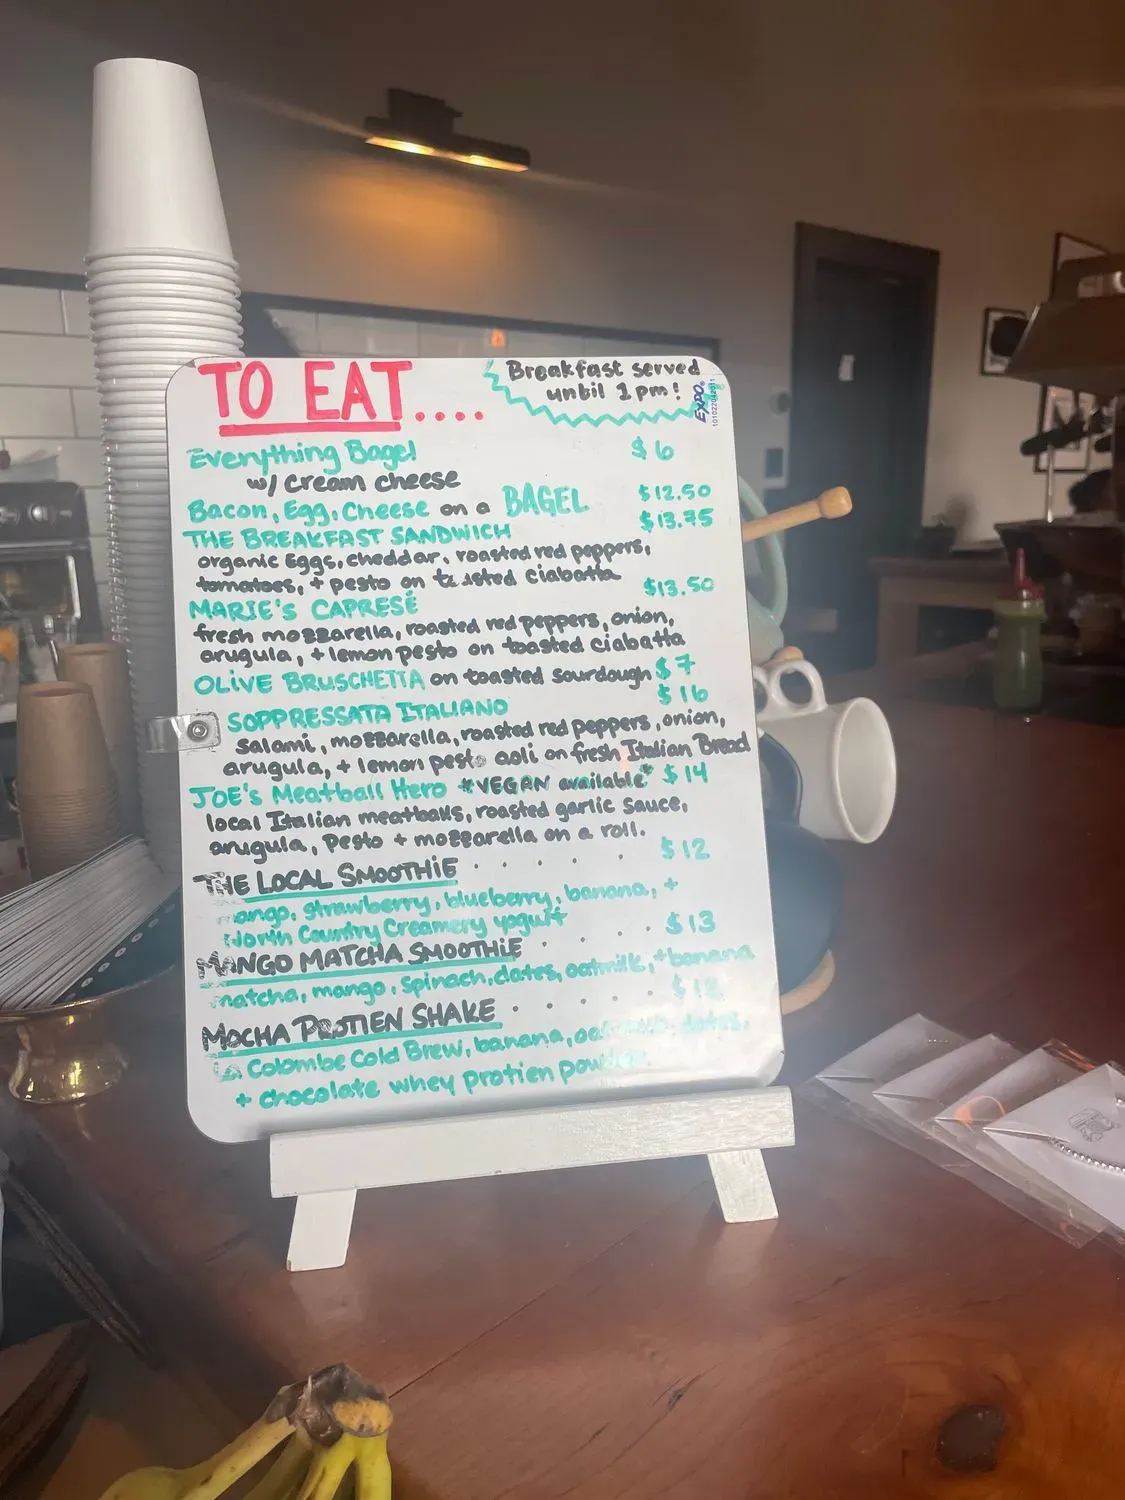 TO EAT....
Breakfast served
until 1pm!
EXPO
Everything Bagel $6
w/ cream cheese
Bacon, Egg, Cheese on a BAGEL $12.50
THE BREAKFAST SANDWICH $13.75
organic Eggs, cheddar, roasted red peppers,
tomatoes, + pesto on toasted ciabatta
MARIE'S CAPRESÉ $13.50
fresh mozzarella, roasted red peppers, onion,
arugula, + lemon pesto on toasted ciabatta
OLIVE BRUSCHETTA on toasted sourdough $7
SOPPRESSATA ITALIANO $16
salami, mozzarella, roasted red peppers, onion,
arugula, + lemon pesto aoli on fresh Italian Bread
JOE'S Meatball Hero *VEGAN available* $14
local Italian meatballs, roasted garlic sauce,
arugula, Pesto + mozzarella on a roll.
THE LOCAL SMOOTHIE . . . . . $12
mango, strawberry, blueberry, banana, +
North Country Creamery yogurt
MANGO MATCHA SMOOTHIE . . . . . $13
matcha, mango, spinach, dates, oatmilk, + banana
MOCHA PROTIEN SHAKE . . . . .
La Colombe Cold Brew, banana, oatmilk, dates,
+ chocolate whey protien powder.